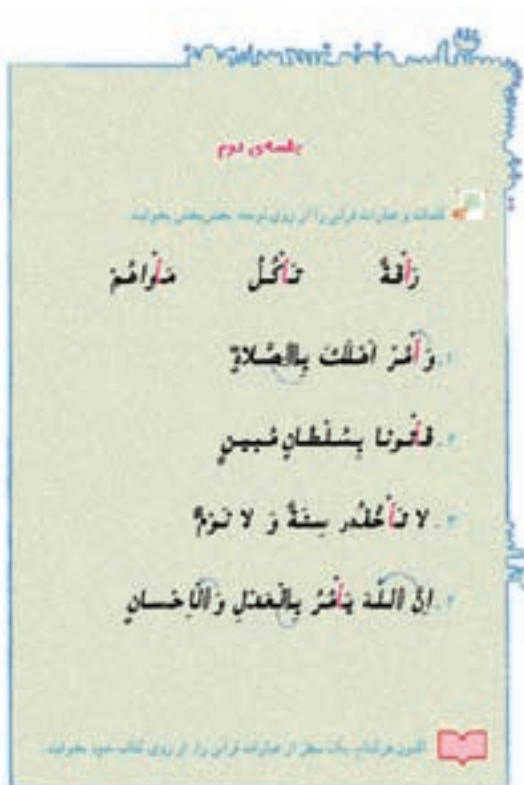 جلسه‌ی دوم
کلمات و عبارات قرآنی را از روی لوحه، بخش‌بخش بخوانید.
رَأْفَةٌ تَأْكُلُ مَأْواهُمْ
۱. وَ أْمُرْ اَهْلَكَ بِالصَّلاةِ
۲. فَأْتونا بِسُلْطانٍ مُبینٍ
۳. لا تَأْخُذُهُ سِنَةٌ وَ لا نَوْمٌ
۴. اِنَّ اللّهَ یَأْمُرُ بِالْعَدْلِ وَ الْاِحْسانِ
اکنون هر کدام یک سطر از عبارات قرآنی را، از روی کتاب خود بخوانید.